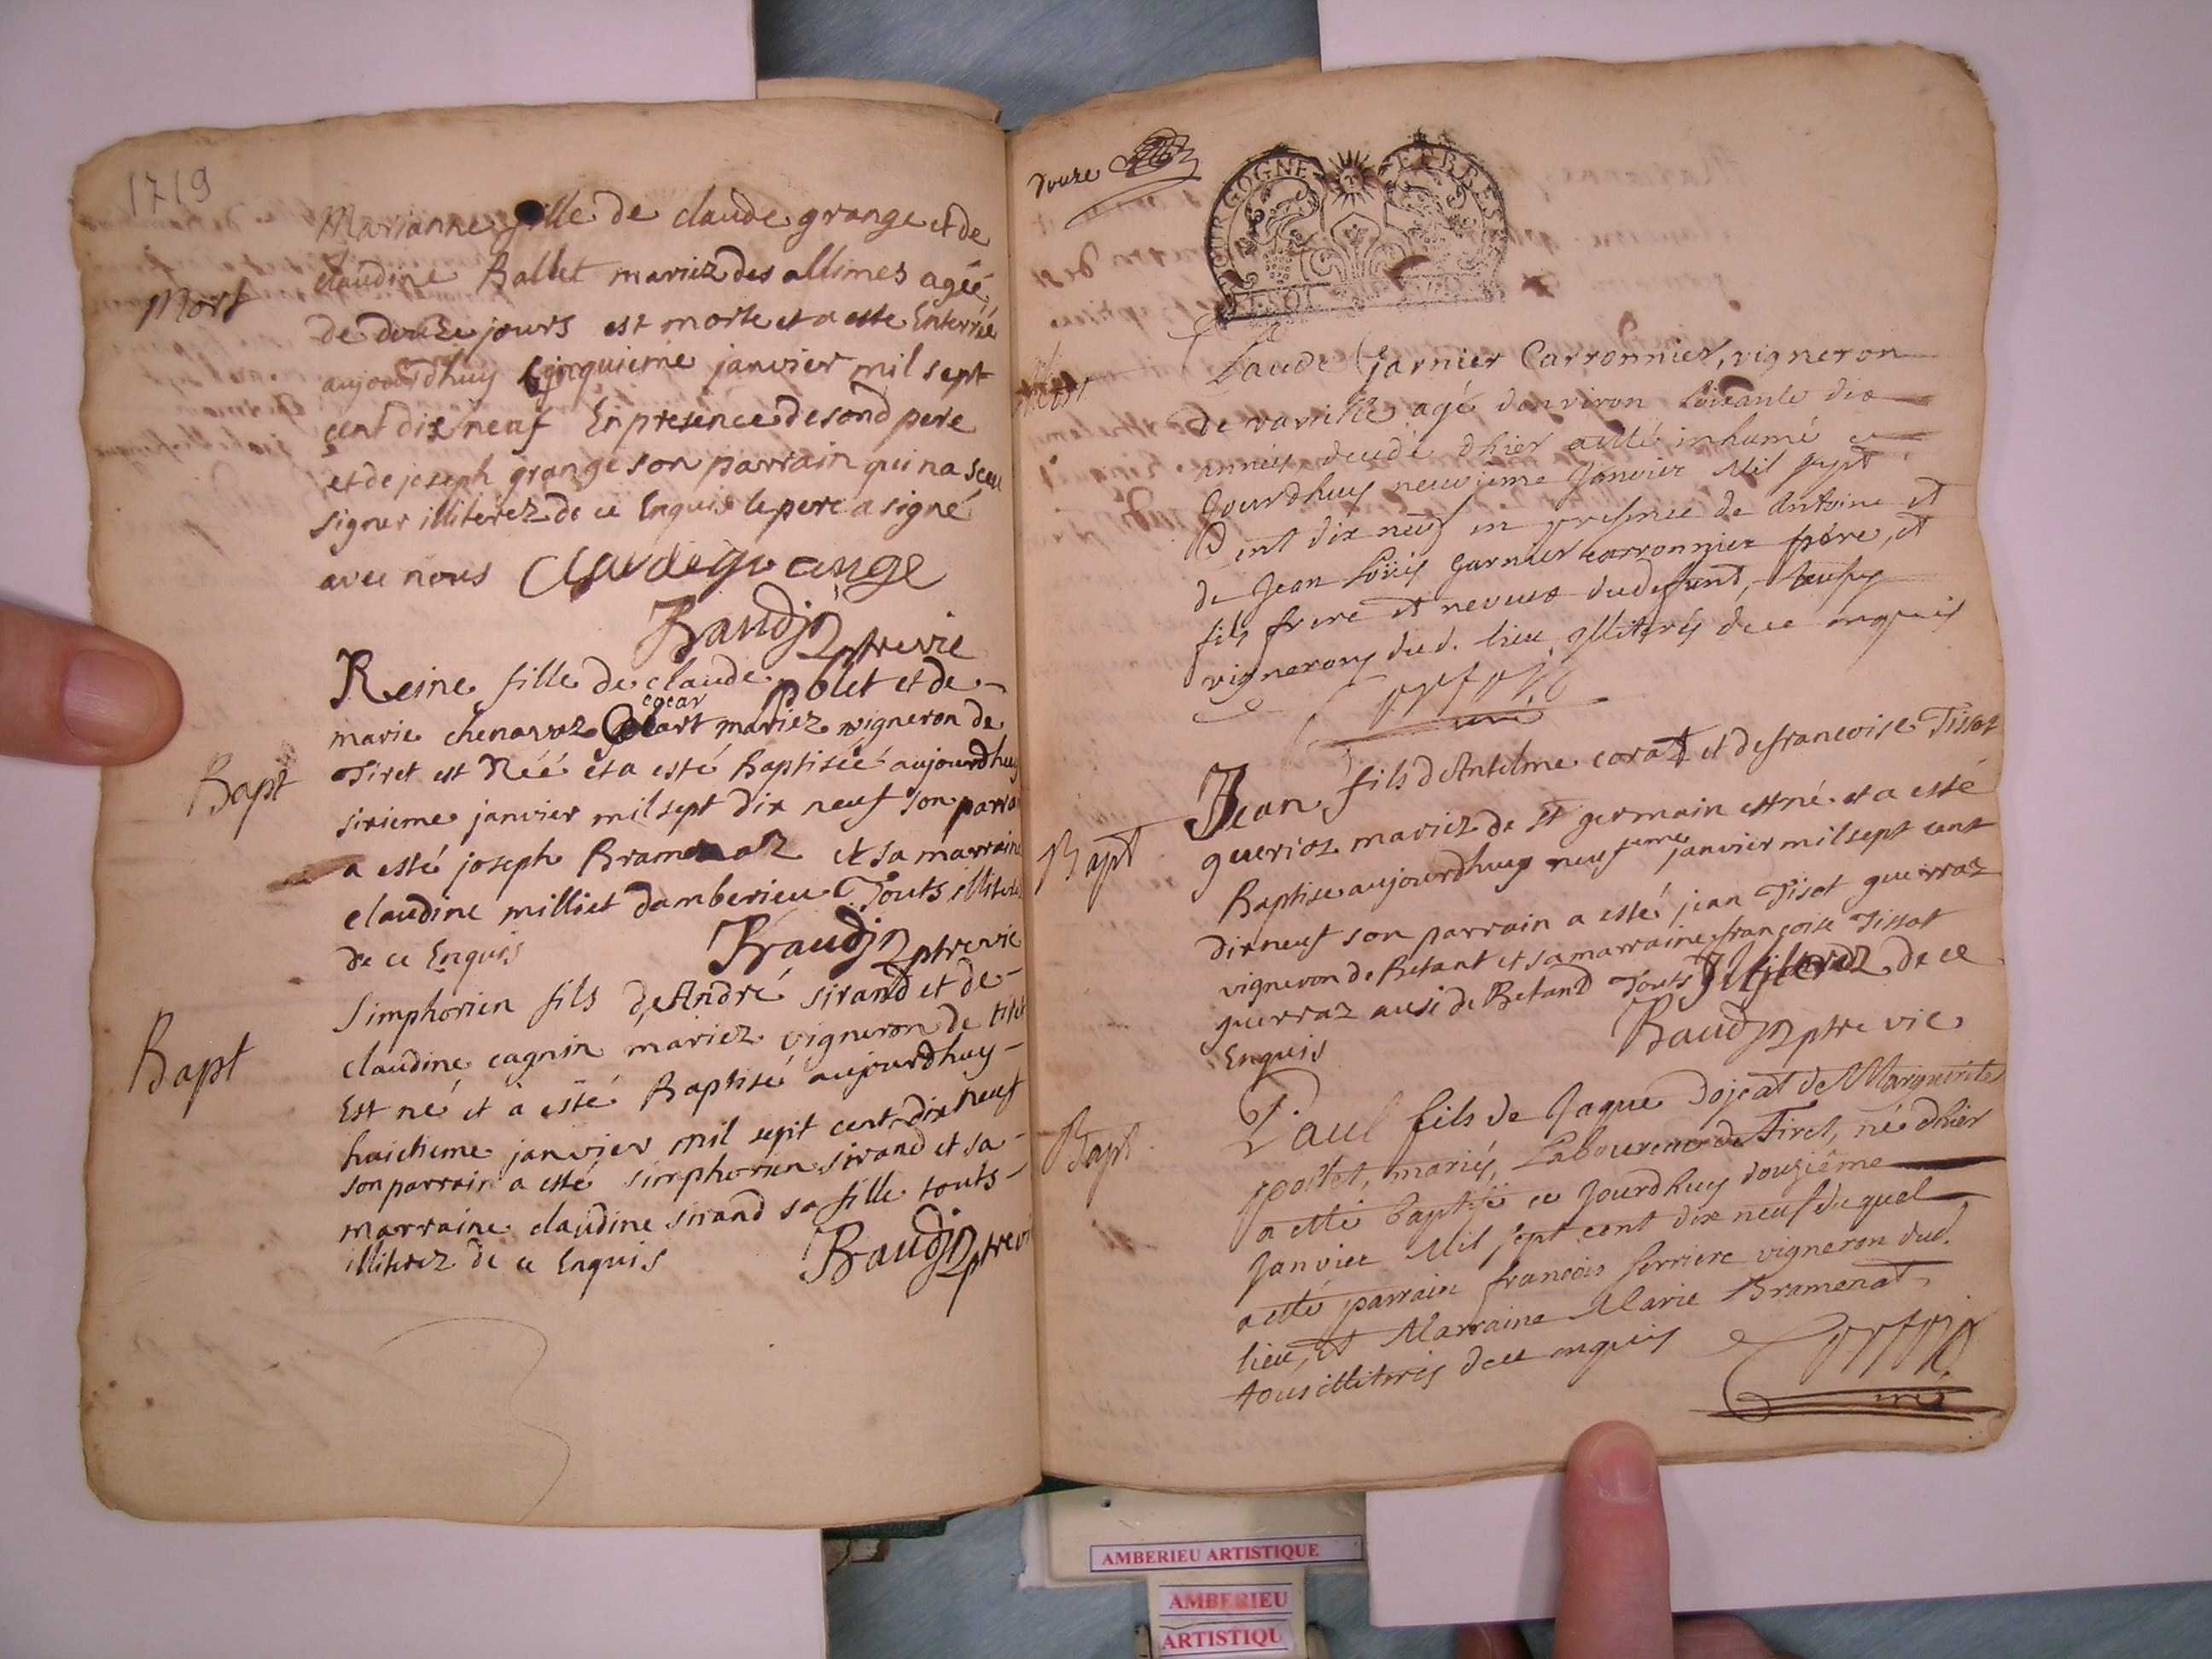 1719
Mort
Marianne fille de claude grange et de
claudine Ballet mariez des allimes agéé
de douze jours est morte et a esté Enterréé
aujourdhuy cinquieme janvier mil sept
cent dix neuf En presence de sond pere
et de joseph grange son parrain qui na sceu
signer illiterez de ce Enquis le pere a signé
avec nous Claude grange
Baudin ptre vic
Bapt
Reine fille de claude polet et de
marie chenavaz mariez vigneron de
Tiret est Néé et a esté Baptiséé aujourdhuy
sixieme janvier mil sept dix neuf son parra
a esté joseph Bramenaz et sa marraine
claudine milliet damberieu Touts illiterez
de ce Enquis
Baudin ptre vic
Bapt
Simphorien fils de André sirand et de
claudine cagnin mariez vigneron de
Est né et a esté Baptisé aujourdhuy
huictieme janvier mil sept cent dix neuf
son parrain a esté simphorien sirand et sa
marraine claudine sirand sa fille touts
illiterez de ce Enquis
Baudin ptre vi
douze
BOURGOGNE ET BRESSE
Mort
Claude Garnier Carronnier, vigneron
de vareille agé denviron soixante dix
années decedé dhier a esté inhumé ce
Jourdhuy neuvieme Janvier Mil sept
Cent dix neuf en presence de Antoine et
de Jean Loüis Garnier carronnier frere, et
fils frere et neveux dudefunt, tous
vignerons dud. lieu illiterés de ce enquis
curé
Bapt
Jean fils dAntelme corat et de francoise Tissot
guerioz mariez de St germain est né et a esté
Baptise aujourdhuy neufieme janvier mil sept cent
dix neuf son parrain a esté jean Tisot guerraz
vigneron de Betant et sa marraine françoise Tissot
guerraz ausi de Betand Touts Illiterez de ce
Enquis
Baudin ptre vic
Bapt
Paul fils de Jaque Dojat de Marguerite
pollet, mariés, Laboureur de Tiret, né dhier
a esté baptisé ce Jourdhuy douzième
Janvier Mil sept cent dix neuf duquel
a esté parrain francois ferriere vigneron dud.
lieu, et Marraine Marie Bramenat
tous illiterés de ce enquis
curé
AMBERIEU ARTISTIQUE
AMBERIEU
ARTISTIQU